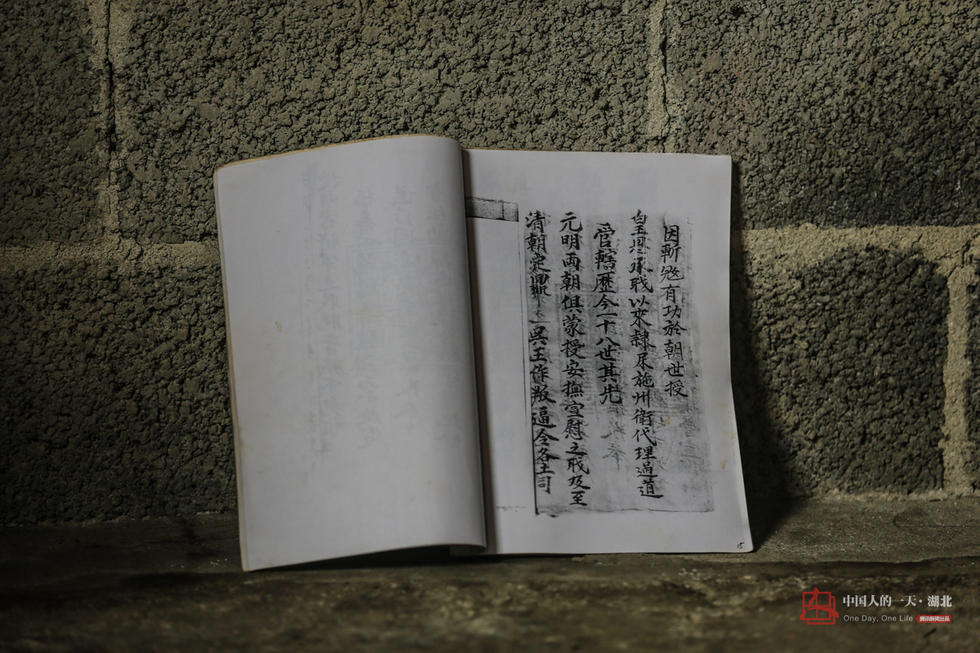 因斬有功於朝世授
皇恩承職以來隸屬施州衛代理過道
管轄歷今一十八世其先
元明両朝俱蒙授安撫宣慰之職及至
清朝定鼎吳王作叛逼令各土司
15
中国人的一天·湖北
One Day, One Life 腾讯新闻出品